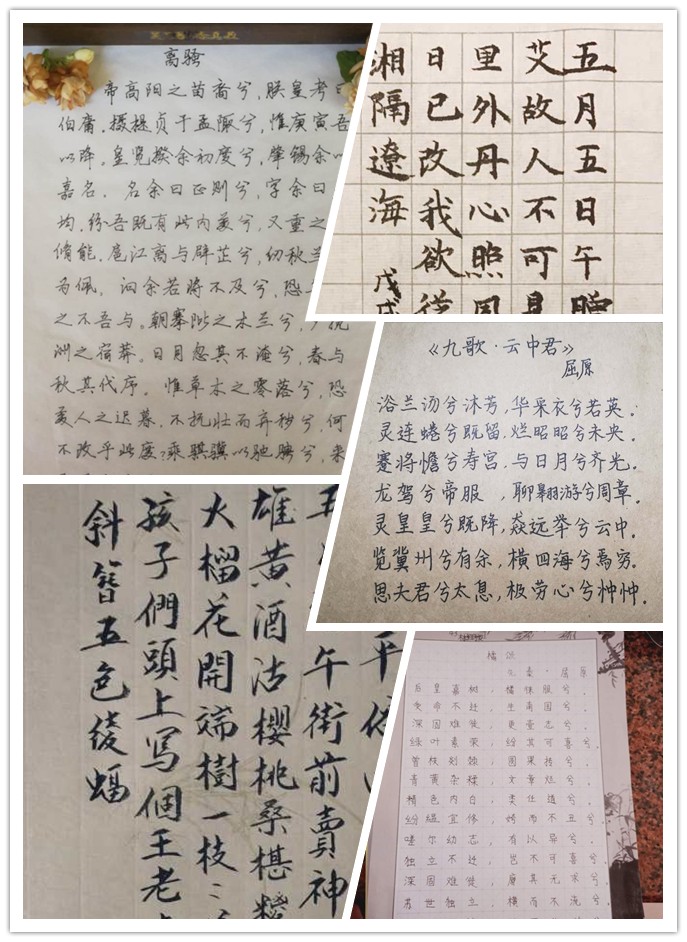 离骚
帝高阳之苗裔兮，朕皇考曰
伯庸。摄提贞于孟陬兮，惟庚寅吾
以降。皇览揆余初度兮，肇锡余以
嘉名。名余曰正则兮，字余曰
均。纷吾既有此内美兮，又重之
脩能。扈江离与辟芷兮，纫秋兰
为佩。汩余若将不及兮，恐
之不吾与。朝搴阰之木兰兮，夕揽
洲之宿莽。日月忽其不淹兮，春与
秋其代序。惟草木之零落兮，恐
美人之迟暮。不抚壮而弃秽兮，何
不改乎此度？乘骐骥以驰骋兮，来
五月五日午贈
艾故人不可見
里外丹心照
日已改我欲從
湘隔遼海
戊戌
《九歌·云中君》
屈原
浴兰汤兮沐芳，华采衣兮若英。
灵连蜷兮既留，烂昭昭兮未央。
蹇将憺兮寿宫，与日月兮齐光。
龙驾兮帝服，聊翱游兮周章。
灵皇皇兮既降，猋远举兮云中。
览冀州兮有余，横四海兮焉穷。
思夫君兮太息，极劳心兮忡忡。
平
五
午街前賣神
雄黄酒沽櫻桃桑椹
火榴花開端樹一枝
孩子們頭上写個王老
斜簪五色綾蝠
橘颂
九章·屈原
后皇嘉树，橘徕服兮。
受命不迁，生南国兮。
深固难徙，更壹志兮。
绿叶素荣，纷其可喜兮。
曾枝剡棘，圆果抟兮。
青黄杂糅，文章烂兮。
精色内白，类任道兮。
纷缊宜修，姱而不丑兮。
嗟尔幼志，有以异兮。
独立不迁，岂不可喜兮。
深固难徙，廓其无求兮。
苏世独立，横而不流兮。